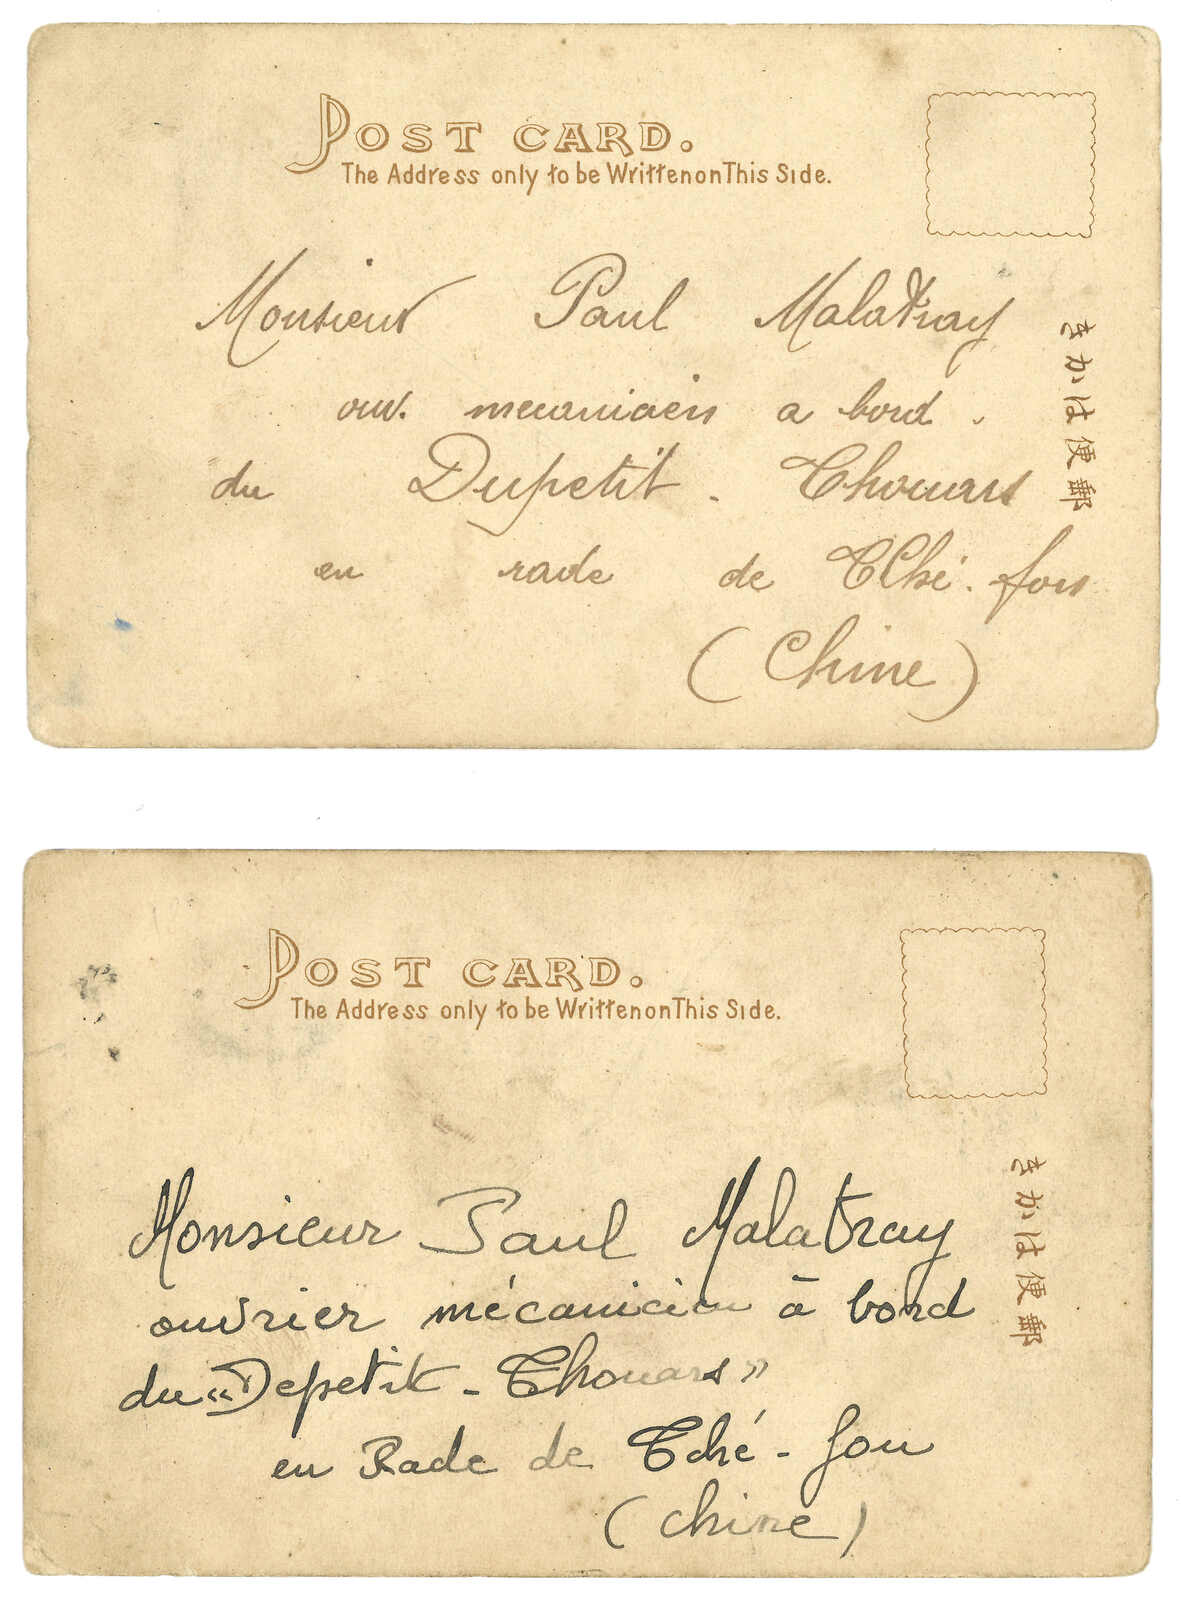 POST CARD.
The Address only to be Written on This Side.
きかは便郵
Monsieur Paul Malatray
ouv. mecanicien a bord.
du Dupetit - Thouars
en rade de Tché. fou
(Chine)
POST CARD.
The Address only to be Written on This Side.
きかは便郵
Monsieur Paul Malatray
ouvrier mécanicien à bord
du « Depetit - Thouars »
en Rade de Tché - fou
(chine)